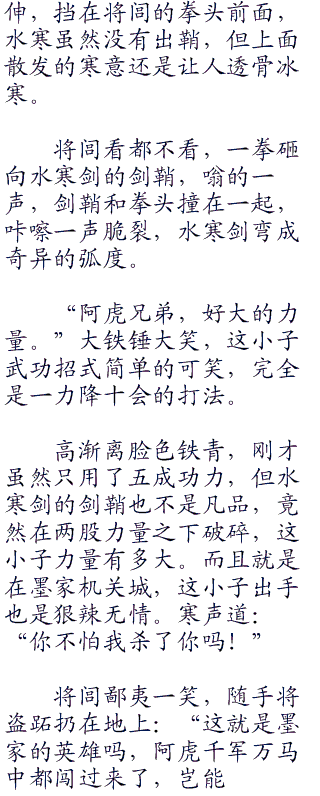 伸，挡在将闾的拳头前面，
水寒虽然没有出鞘，但上面
散发的寒意还是让人透骨冰
寒。
将闾看都不看，一拳砸
向水寒剑的剑鞘，嗡的一
声，剑鞘和拳头撞在一起，
咔嚓一声脆裂，水寒剑弯成
奇异的弧度。
“阿虎兄弟，好大的力
量。”大铁锤大笑，这小子
武功招式简单的可笑，完全
是一力降十会的打法。
高渐离脸色铁青，刚才
虽然只用了五成功力，但水
寒剑的剑鞘也不是凡品，竟
然在两股力量之下破碎，这
小子力量有多大。而且就是
在墨家机关城，这小子出手
也是狠辣无情。寒声道：
“你不怕我杀了你吗！”
将闾鄙夷一笑，随手将
盗跖扔在地上：“这就是墨
家的英雄吗，阿虎千军万马
中都闯过来了，岂能